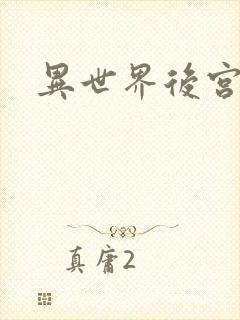 異世界後宮
真庸2